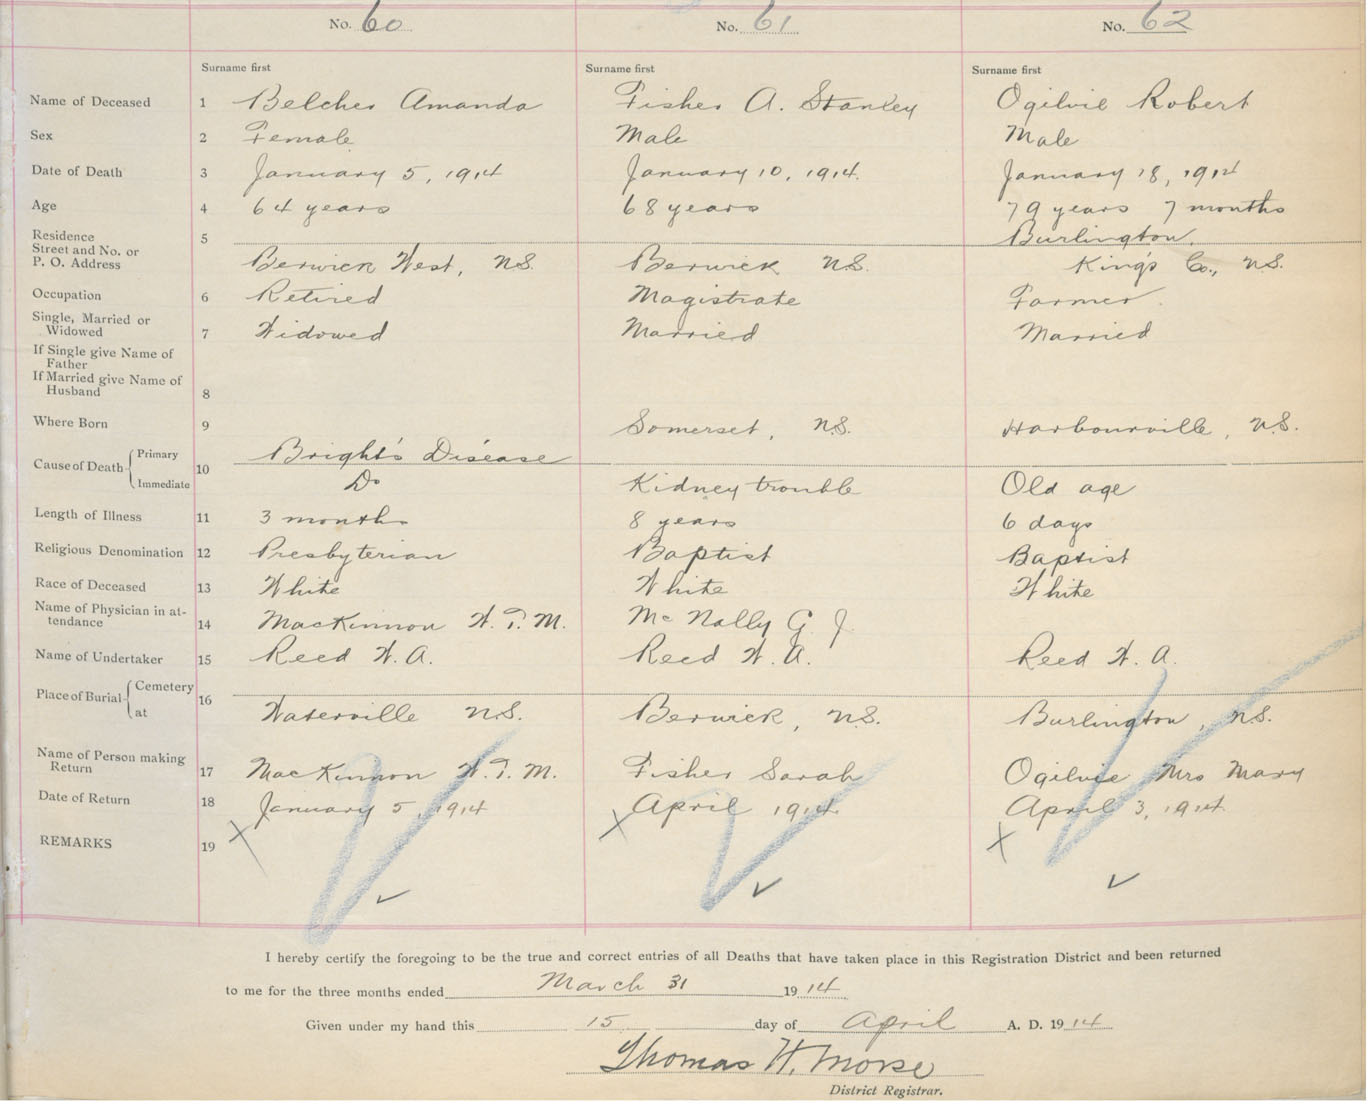 No. 60 No. 61 No. 62
Surname first Surname first Surname first
Name of Deceased 1 Belcher Amanda Fisher A. Stanley Ogilvie Robert
Sex 2 Female Male Male
Date of Death 3 January 5, 1914 January 10, 1914. January 18, 1914
Age 4 64 years 68 years 79 years 7 months
Residence 5 Burlington,
Street and No. or
P. O. Address Berwick West, N.S. Berwick N.S. King's Co., N.S.
Occupation 6 Retired Magistrate Farmer
Single, Married or
Widowed 7 Widowed Married Married
If Single give Name of
Father
If Married give Name of
Husband 8
Where Born 9 Somerset, N.S. Harbourville, N.S.
Cause of Death Primary 10 Bright's Disease
Immediate Do Kidney trouble Old age
Length of Illness 11 3 months 8 years 6 days
Religious Denomination 12 Presbyterian Baptist Baptist
Race of Deceased 13 White White White
Name of Physician in at-
tendance 14 MacKinnon W.T.M. McNally G. J.
Name of Undertaker 15 Reed W.A. Reed W. A. Reed W. A.
Place of Burial Cemetery 16
at Waterville N.S. Berwick, N.S. Burlington, N.S.
Name of Person making
Return 17 MacKinnon W.T.M. Fisher Sarah Ogilvie Mrs Mary
Date of Return 18 January 5, 1914 April 1914. April 3, 1914.
REMARKS 19
I hereby certify the foregoing to be the true and correct entries of all Deaths that have taken place in this Registration District and been returned
to me for the three months ended March 31 1914
Given under my hand this 15 day of April A. D. 1914
Thomas H. Morse
District Registrar.